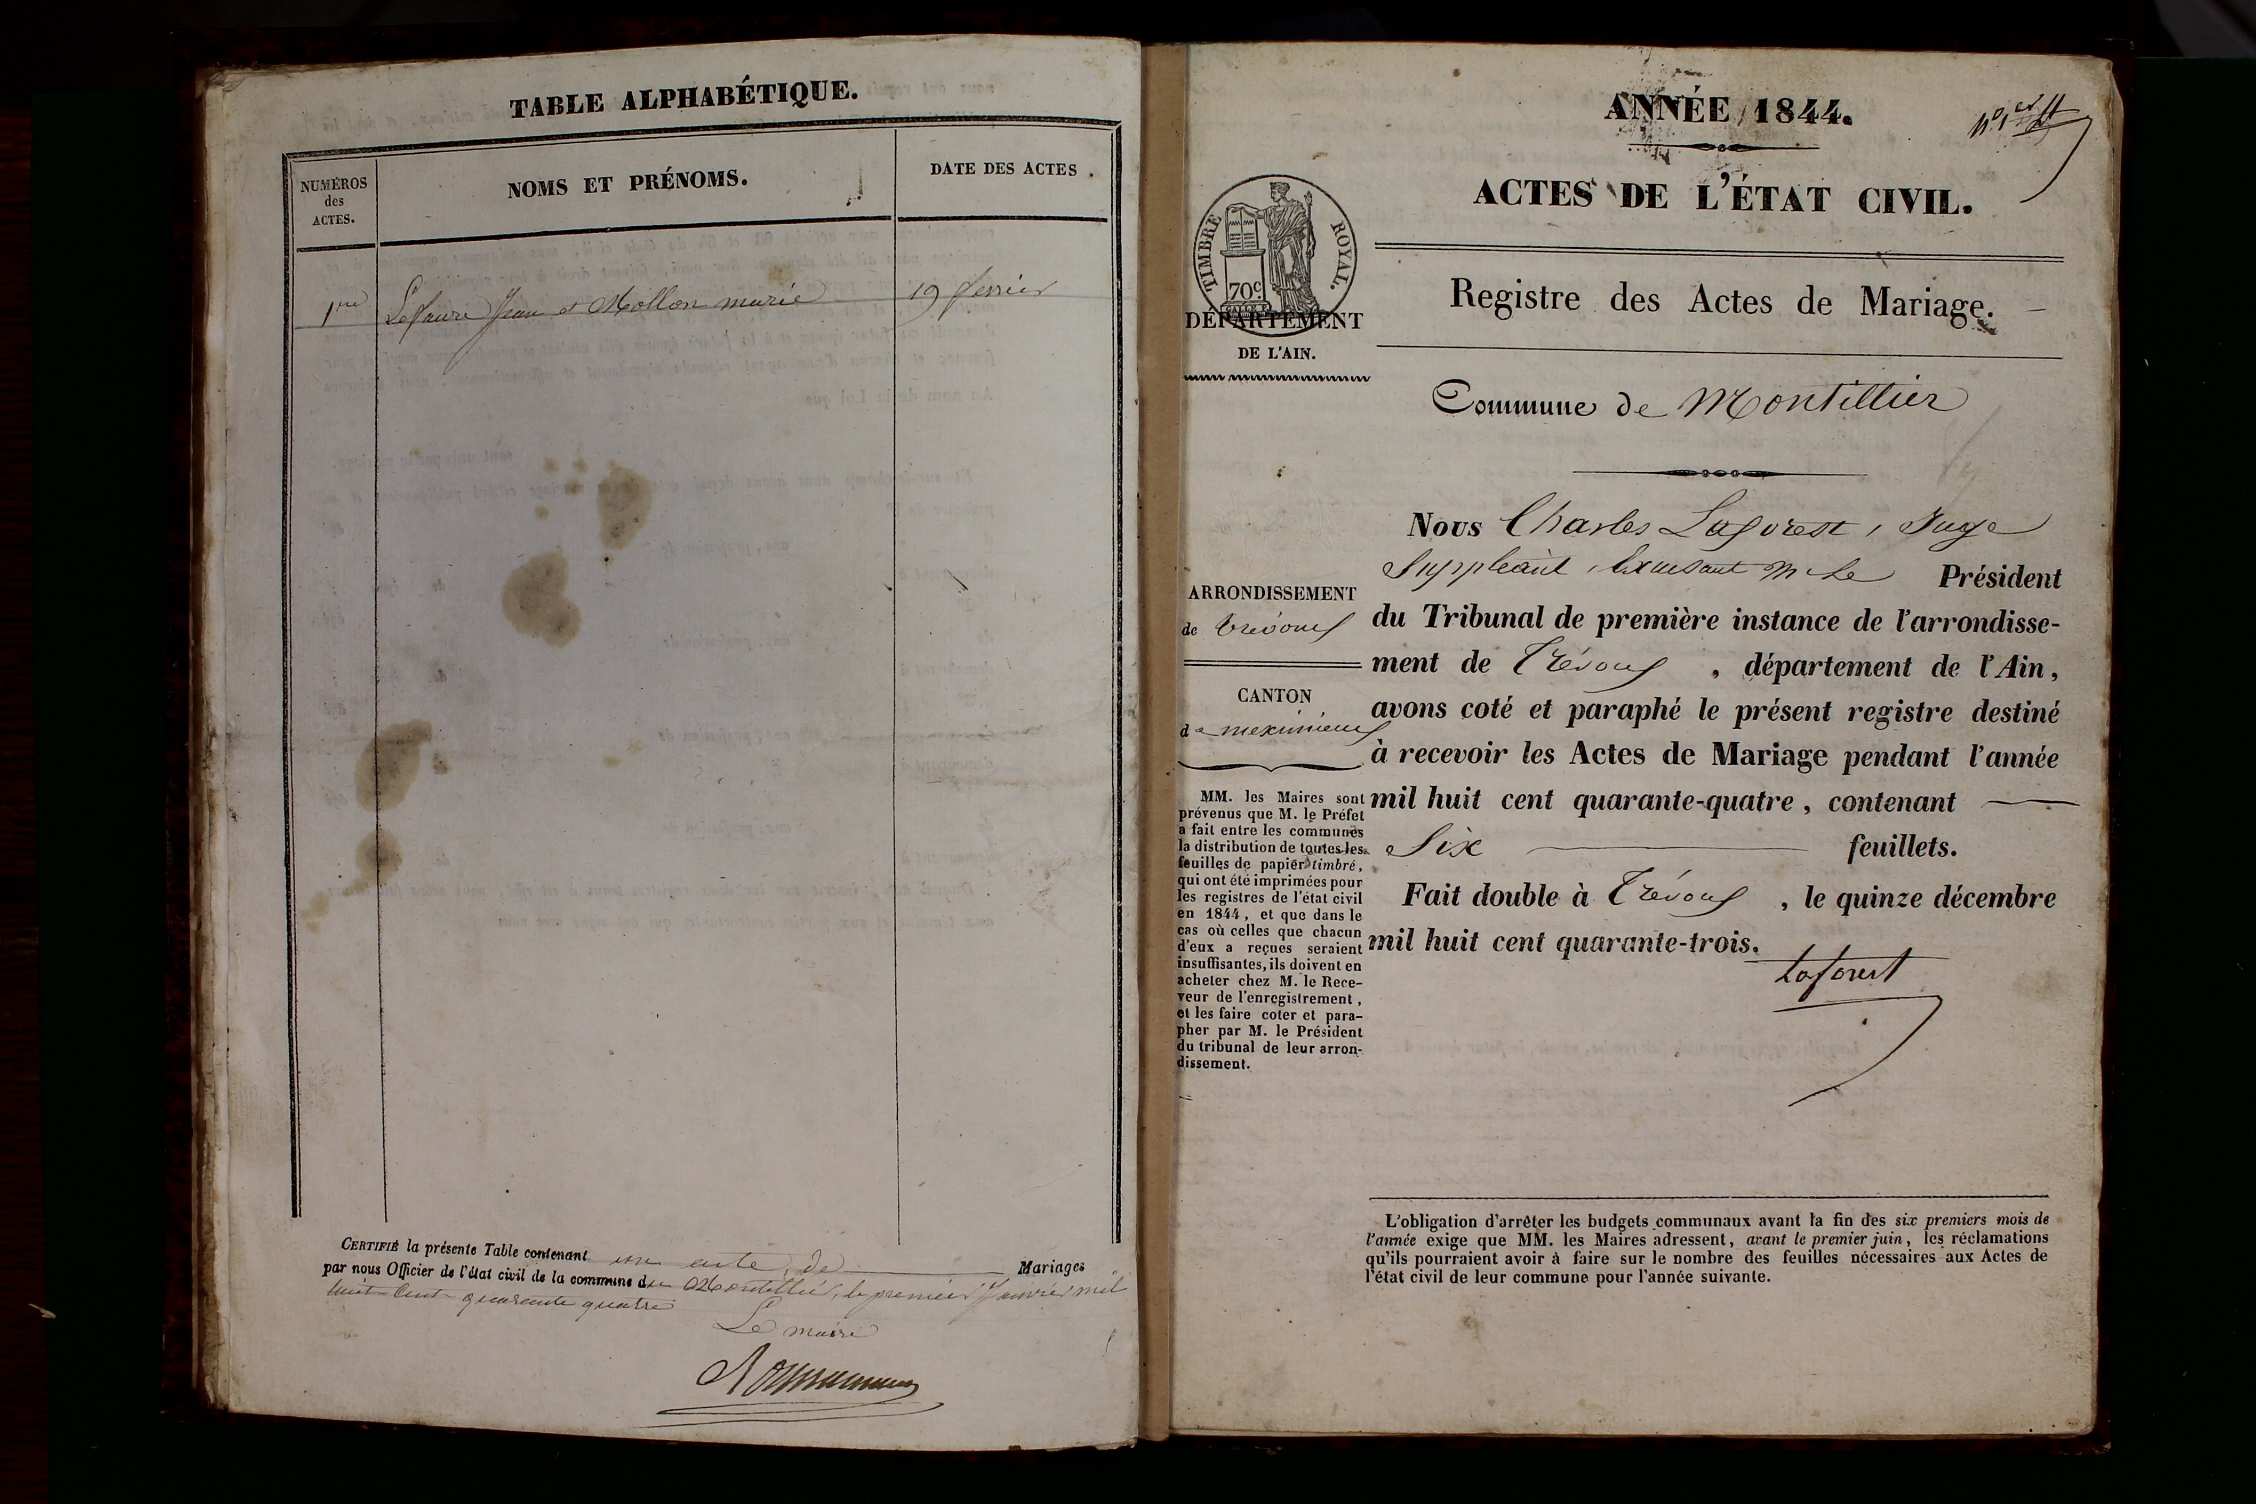 TABLE ALPHABÉTIQUE.
NUMÉROS
des
ACTES.
NOMS ET PRÉNOMS.
DATE DES ACTES.
1re Lefaure Jean et Mollon marie 19 fevrier
CERTIFIÉ la présente Table contenant un acte de Mariages
par nous Officier de l'état civil de la commune de Montellier, le premier Janvier mil
huit Cent quarante quatre
Le maire
ANNÉE 1844.
ACTES DE L'ÉTAT CIVIL.
TIMBRE ROYAL.
70c.
DÉPARTEMENT
DE L'AIN.
Registre des Actes de Mariage.
Commune de Montellier
ARRONDISSEMENT
de trévoux
CANTON
de meximieux
MM. les Maires sont
prévenus que M. le Préfet
a fait entre les communes
la distribution de toutes les
feuilles de papier timbré,
qui ont été imprimées pour
les registres de l'état civil
en 1844, et que dans le
cas où celles que chacun
d'eux a reçues seraient
insuffisantes, ils doivent en
acheter chez M. le Rece-
veur de l'enregistrement,
et les faire coter et para-
pher par M. le Président
du tribunal de leur arron-
dissement.
Nous Charles Laforest, Juge
Suppléant, Excusant M. Le Président
du Tribunal de première instance de l'arrondisse-
ment de Trévoux, département de l'Ain,
avons coté et paraphé le présent registre destiné
à recevoir les Actes de Mariage pendant l'année
mil huit cent quarante-quatre, contenant
Six feuillets.
Fait double à Trévoux, le quinze décembre
mil huit cent quarante-trois.
Laforest
L'obligation d'arrêter les budgets communaux avant la fin des six premiers mois de
l'année exige que MM. les Maires adressent, avant le premier juin, les réclamations
qu'ils pourraient avoir à faire sur le nombre des feuilles nécessaires aux Actes de
l'état civil de leur commune pour l'année suivante.